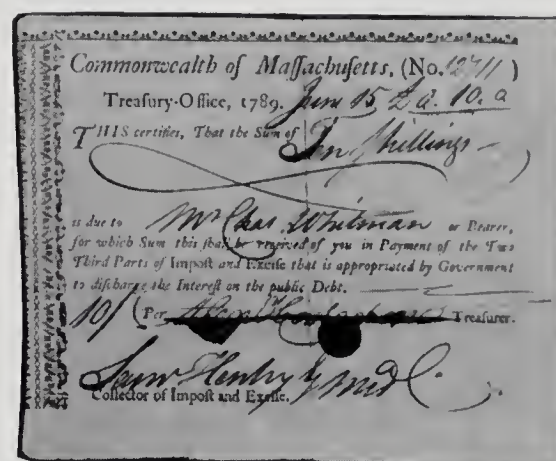 Commonwealth of Maſſachuſetts, (No. 12711)
Treaſury-Office, 1789. June 15 £ 0. 10. 0
THIS certifies, That the Sum of Ten Shillings
is due to Mr Chas. Whitman or Bearer,
for which Sum this ſhall be received of you in Payment of the Two
Third Parts of Impoſt and Exciſe that is appropriated by Government
to diſcharge the Intereſt on the public Debt.
10/ (Per Treaſurer.
Henley
Collector of Impoſt and Exciſe.